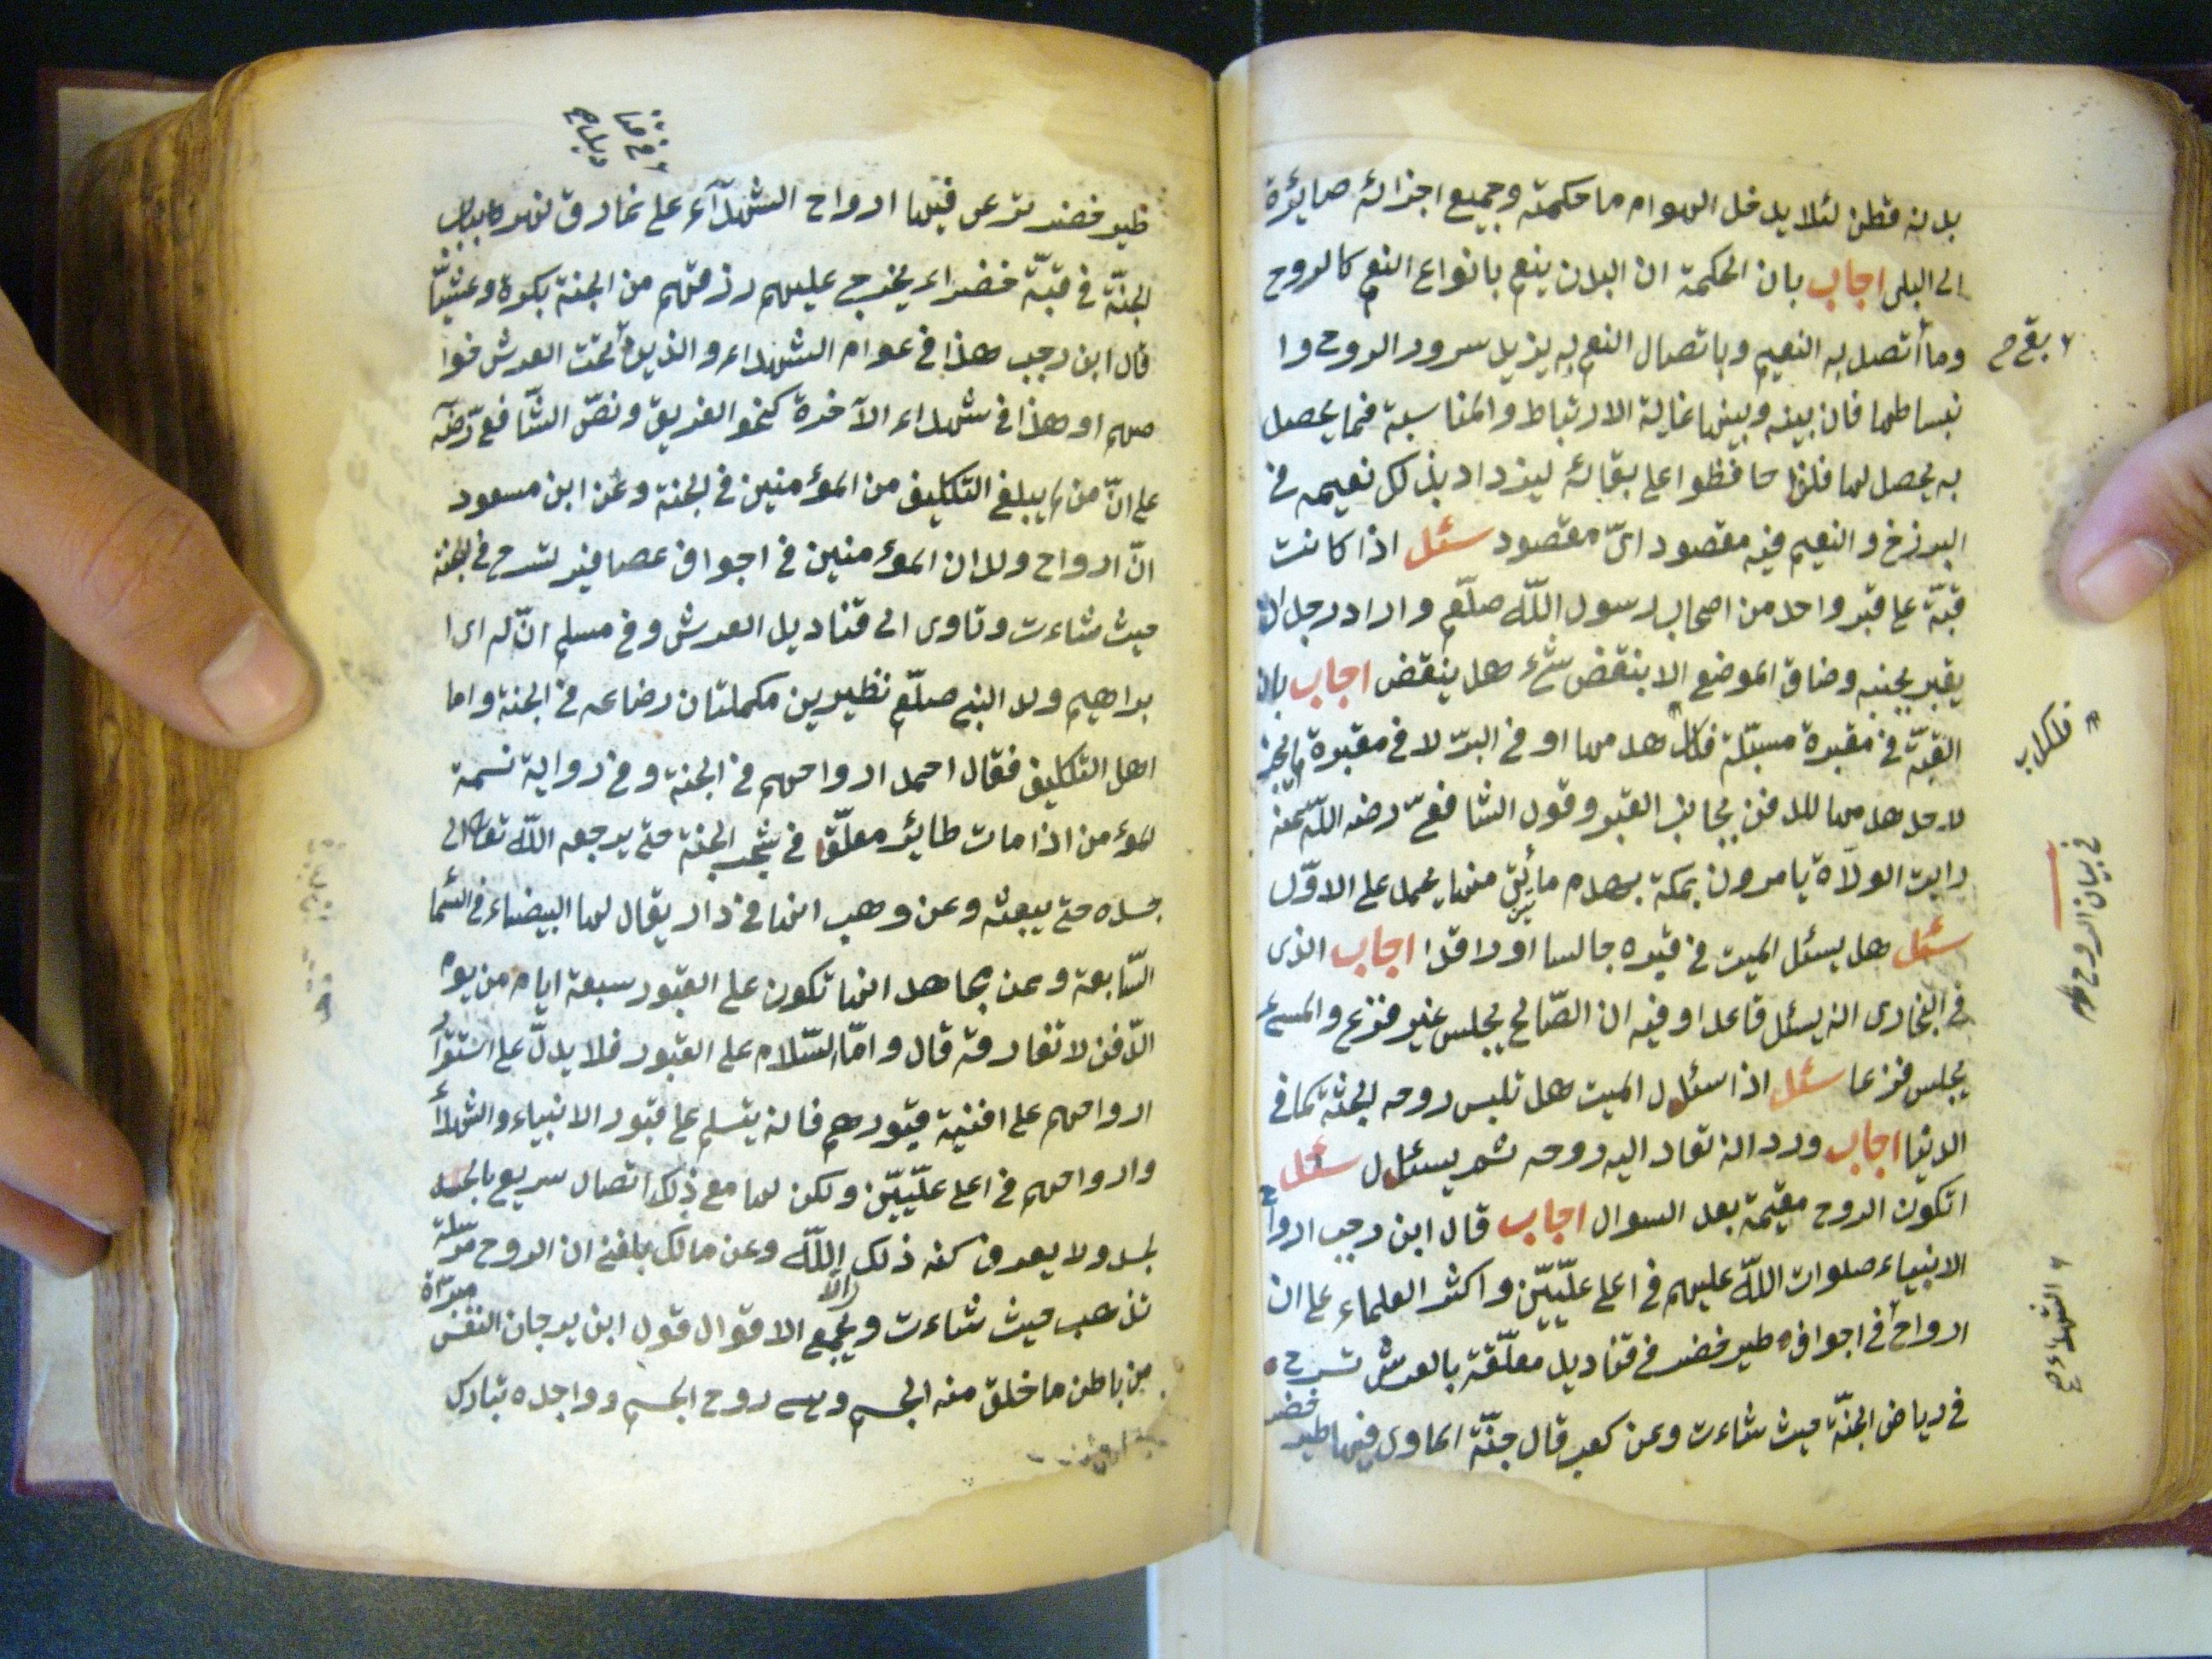 بدنه قطن لئلا يدخل الهوام ما حكمته وجميع اجزائه صايرة
الى البلى اجاب بان الحكمة ان البدن ينعم بانواع النعم كالروح
وما أتصل به النعيم وباتصال النعم به يزيل سرور الروح وا
نبساطها فان بينه وبينها غاية الارتباط والمناسبة فما يحصل
به يحصل لها فلهذا حافظوا على بقائه ليزداد بذلك نعيمه فى
البرزخ والنعيم فيه مقصود اىّ مقصود سئل اذا كانت
قبّة على قبر واحد من اصحاب رسول اللّه صلّعم واراد رجل ان
يقبر بجنبه وضاق الموضع الا بنقض شئ هل ينقض اجاب بان
القبّة فى مقبرة مسبّلة فكل هدمها او فى البرّ لا فى مقبرة
لاحد هدمها للدفن بجانب القبر وقول الشافعىّ رضه اللّه عنه
رايت الولاة يامرون بمكة بهدم ما بنى منها يحمل على الاوّل
سئل هل يسئل الميت فى قبره جالسا او راقدا اجاب الذى
فى البخارى انه يسئل قاعدا وفيه ان الصّالح يجلس غير فزع والمسئ
يجلس فزعا سئل اذا سئل الميت هل تلبس روحه الجثة كما فى
الدنيا اجاب ورد انه تعاد اليه روحه ثم يسئل سئل
اتكون الروح مقيمة بعد السوال اجاب قال ابن رجب ارواح
الانبياء صلوات اللّه عليهم فى اعلى علّيّين واكثر العلماء على ان
ارواح فى اجواف طير خضر فى قناديل معلّقة بالعرش تسرح
فى رياض الجنّة حيث شاءت وعن كعب قال جنّة الماوى فيها طير خضر
فى بيان الروح
الشهداء صح
طير خضر ترعى فيها ارواح الشهدآء على نمارق نهر بباب
الجنّة فى قبّة خضراء يخرج عليهم رزقهم من الجنة بكرة وعشيّا
قال ابن رجب هذا فى عوام الشهداء والذين تحت العرش خوا
صهم او هذا فى شهداء الآخرة كنحو الغريق ونصّ الشّافعى رضه
على انّ من لم يبلغ التكليف من المؤمنين فى الجنة وعن ابن مسعود
انّ ارواح ولدان المؤمنين فى اجواف عصافير تسرح فى الجنة
حيث شاءت وتاوى الى قناديل العرش وفى مسلم انّ له اى ا
براهيم ولد النبى صلّعم نظيرين مكملتان رضاعه فى الجنة واما
اهل التكليف فقال احمد ارواحهم فى الجنة وفى رواية نسمة
المؤمن اذا مات طائر معلّق فى شجر الجنة حتى يرجعه اللّه تعالى الى
جسده حتى يبعثه وعن وهب انها فى دار يقال لها البيضاء فى السما
السّابعة وعن مجاهد انها تكون على القبور سبعة ايام من يوم
الدّفن لا تفارقه قال وامّا السّلام على القبور فلا يدلّ على استقرا
ارواحهم على افنية قبورهم فانه يتسلم على قبور الانبياء والشهدأ
وارواحهم فى اعلى علّيّين ولكن لها مع ذلك اتصال سريع بالجسد
ولا يعرف كنه ذلك الا اللّه وعن مالك بلغنى ان الروح مرسلة
تذهب حيث شاءت ويجمع الاقوال قول ابن برجان النفس مبرّاة
من باطن ما خلق منه الجسم وهى روح الجسم وواجده تبارك